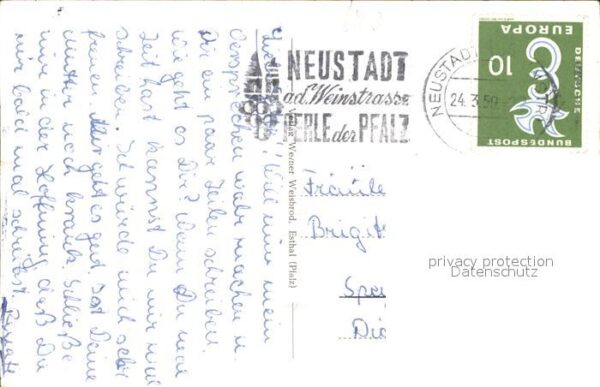 will nun mein
Versprechen wahr machen u.
Dir ein paar Zeilen schreiben.
Wie geht es Dir? Wenn Du mal
Zeit hast kannst Du mir mal
schreiben. Ich würde mich sehr
freuen. Mir geht es gut. Ist Deine
Mutter noch krank. Schließe
nun in der Hoffnung daß Du
mir bald mal schreibst
NEUSTADT
a.d. Weinstrasse
PERLE der PFALZ
NEUSTADT
24.3.59
10
EUROPA
DEUTSCHE
BUNDESPOST
Verlag Werner Weisbrod, Esthal (Pfalz)
Fräule
Brigit
Spe
Die
privacy protection
Datenschutz